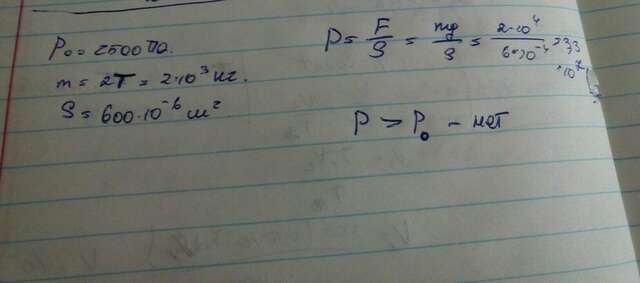 P₀ = 2500 Па.
m = 2Т = 2·10³ кг.
S = 600·10⁻⁶ м²
P = F/S = mg/S = 2·10⁴/6·10⁻⁴ = 3,3
·10⁷
P > P₀ - нет